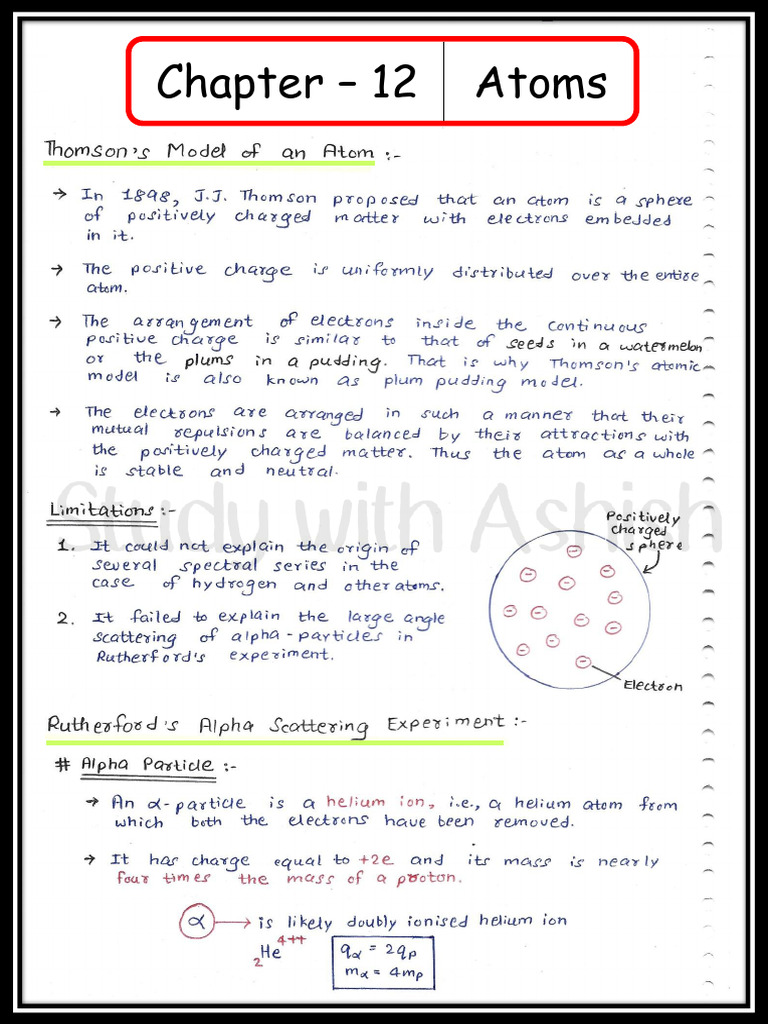 Chapter – 12 Atoms
Thomson's Model of an Atom :-
→ In 1898, J.J. Thomson proposed that an atom is a sphere
of positively charged matter with electrons embedded
in it.
→ The positive charge is uniformly distributed over the entire
atom.
→ The arrangement of electrons inside the continuous
positive charge is similar to that of seeds in a watermelon
or the plums in a pudding. That is why Thomson's atomic
model is also known as plum pudding model.
→ The electrons are arranged in such a manner that their
mutual repulsions are balanced by their attractions with
the positively charged matter. Thus the atom as a whole
is stable and neutral.
Study with Ashish
Limitations :-
1. It could not explain the origin of
several spectral series in the
case of hydrogen and other atoms.
2. It failed to explain the large angle
scattering of alpha-particles in
Rutherford's experiment.
Positively
charged
sphere
Electron
Rutherford's Alpha Scattering Experiment :-
# Alpha Particle :-
→ An α-particle is a helium ion, i.e., a helium atom from
which both the electrons have been removed.
→ It has charge equal to +2e and its mass is nearly
four times the mass of a proton.
α → is likely doubly ionised helium ion
₂He⁴⁺⁺
qα = 2qp
mα = 4mp